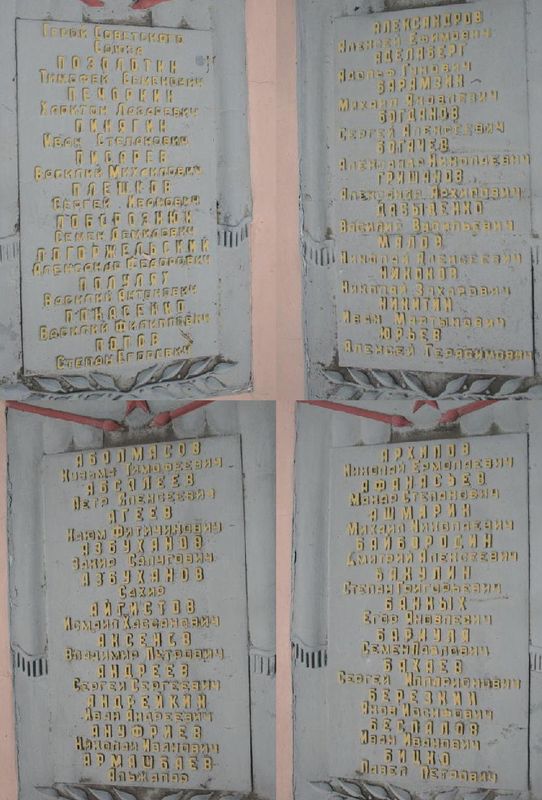 Герои Советского
Союза
ПОЗОЛОТИН
Тимофей Семенович
ПЕЧОРКИН
Харитон Лазаревич
ПИНЯГИН
Иван Степанович
ПИСАРЕВ
Василий Михайлович
ПЛЕШКОВ
Сергей Иванович
ПОБОРОЗНЮК
Семен Демидович
ПОГОРЖЕЛЬСКИЙ
Александр Федорович
ПОЛУЛЯХ
Василий Антонович
Василий Филиппович
ПОПОВ
Степан Егорович
АЛЕКСАНДРОВ
Алексей Ефимович
АДЕЛЬБЕРГ
Адольф
БАРАМЗИН
Михаил Яковлевич
БОГДАНОВ
Сергей Алексеевич
БОГАЧЕВ
Александр Николаевич
ГРИШАНОВ
Александр Архипович
ДАВЫДЕНКО
Василий Васильевич
МЯЛОВ
Николай Алексеевич
НИКОНОВ
Николай Захарович
НИКИТИН
Иван Мартынович
ЮРЬЕВ
Алексей Герасимович
АБОЛМАСОВ
Кузьма Тимофеевич
АБСАЛЕЕВ
Петр Алексеевич
АГЕЕВ
Наум
АЗБУХАНОВ
Закир
АЗБУХАНОВ
Сахир
АЙГИСТОВ
Исмаил Хасанович
АКСЕНОВ
Владимир Петрович
АНДРЕЕВ
Сергей Сергеевич
АНДРЕЙКИН
Иван Андреевич
АНУФРИЕВ
Николай Иванович
АРМЯШБАЕВ
Альжапар
АРХИПОВ
Николай Ермолаевич
АФАНАСЬЕВ
Макар Степанович
АШМАРИН
Михаил Николаевич
БАЙБОРОСИН
Дмитрий Алексеевич
БАКУЛИН
Степан Григорьевич
БАННЫХ
Егор Яковлевич
БАРКУЛЯ
Семен Павлович
БАХАЕВ
Сергей Илларионович
БЕРЕЗКИН
Яков Иосифович
БЕСПАЛОВ
Иван Иванович
БИЦКО
Павел Петрович